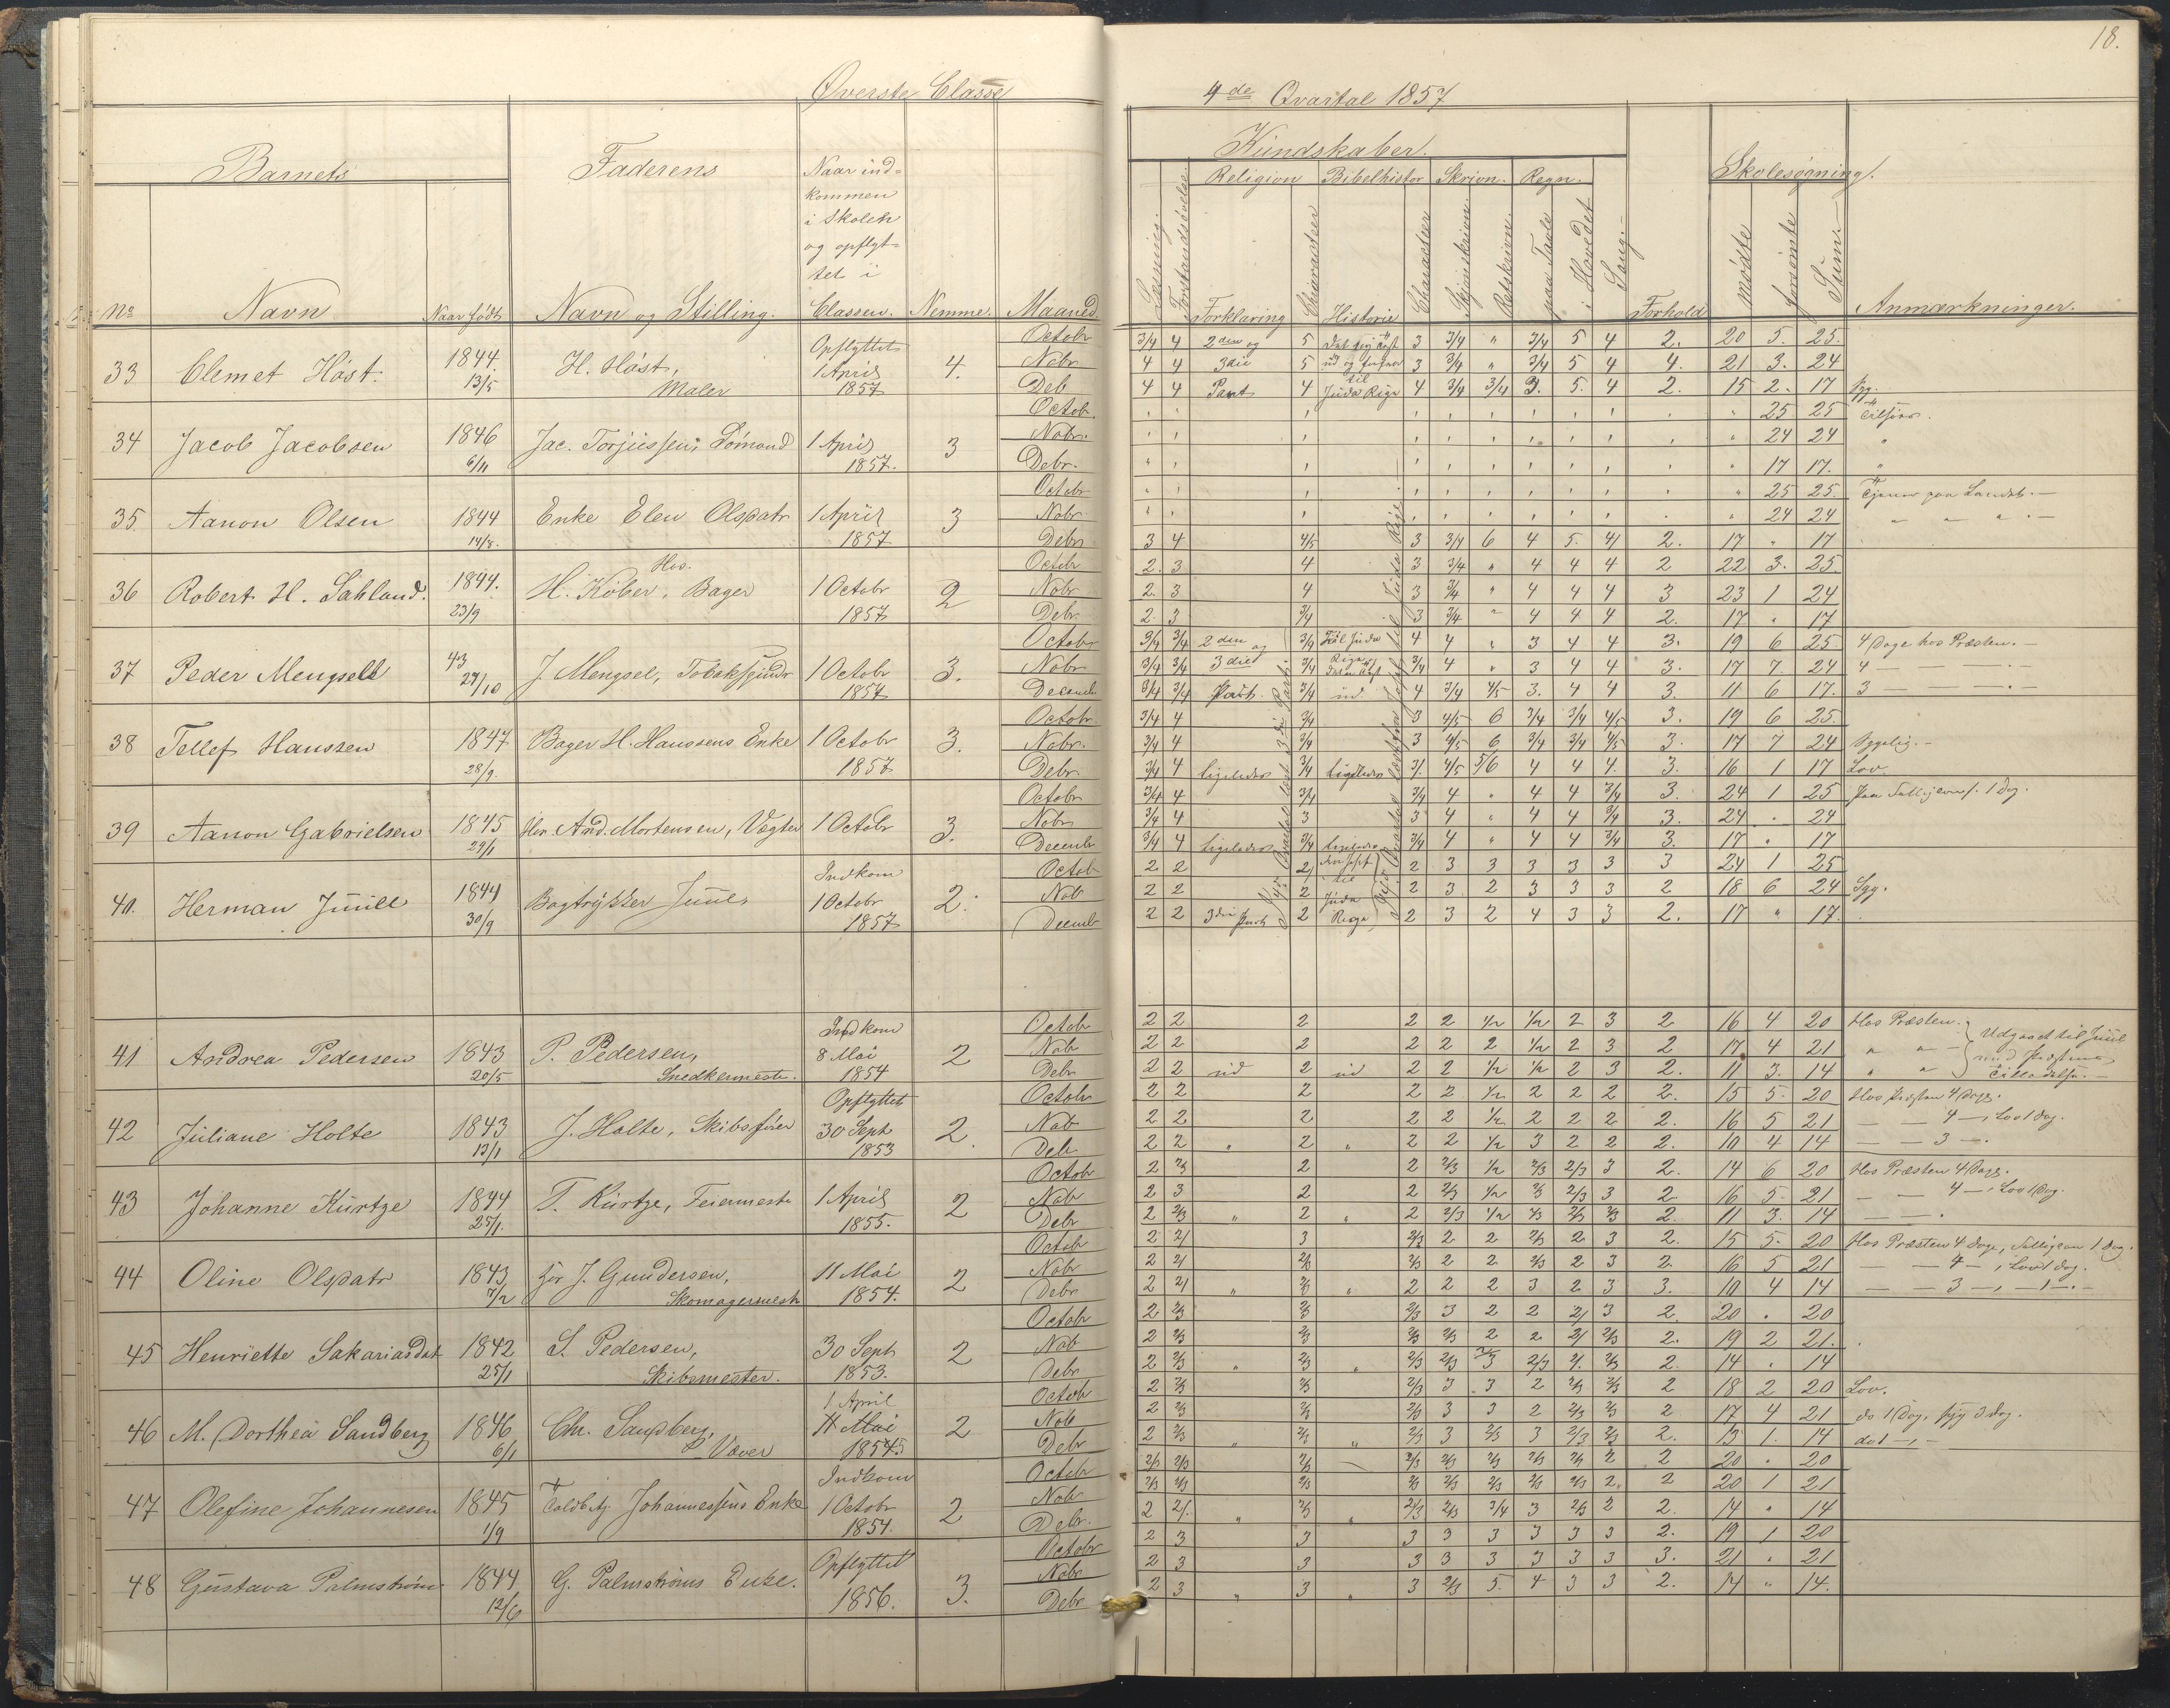 18.
Øverste Classe
4de Qvartal 1857
Barnets
Faderens
Naar ind=
kommen
i Skolen
og opflyt=
tet i
Classen.
No
Navn
Naar født
Navn og Stilling.
Nemme.
Maaned
Kundskaber.
Religion Bibelhistor Skrivn. Regn.
Læsning.
Forstandsøvelse.
Forklaring
Characteer
Historie
Characteer
Skjønskrivn.
Retskrivn.
paa Tavle
i Hovedet
Sang.
Forhold
Skolesøgning.
mødte
forsømte
Sum.
Anmærkninger.
33 Clemet Høst. 1844. 13/5 H. Høst, Maler Opflyttet 1 April 1857 4.
Octobr 3/4 4 2den og 5 3 3/4 " 3/4 5 4 2. 20 5. 25.
Nobr 4 4 3die 5 3 3/4 " 3/4 5 4 4. 21 3. 24
Deb 4 4 Part 4 Juda Rige 4 3/4 3/4 3. 5. 4 2. 15 2. 17 Syg.
34 Jacob Jacobsen 1846 6/11 Jac. Torjussen, Sømand 1 April 1857. 3
Octob. 25 25 Tilsjøs.
Nobr. 24 24 "
Debr. 17 17. "
35. Aanon Olsen 1844 14/8. Enke Elen Olsdatr 1 April 1857 3
Octobr 25 25. Tjener paa Landet.
Nobr 24 24 " " "
Debr 3 4 4/5 3 3/4 6 4 5. 4 2. 17 " 17
36 Robert H. Sahland. 1844. 23/9 Hos. H. Köber, Bager 1 Octobr 1857 2
Octobr 2. 3 4 3 3/4 " 4 4 4 2 22 3. 25.
Nobr 2. 3 4 3 3/4 " 4 4 4 3 23 1 24
Debr 2. 3 3/4 3 3/4 " 4 4 4 2. 17 " 17
37 Peder Mengsell 43 29/10 J. Mengsel, Tobakspinder 1 Octobr 1857 3.
Octobr 3/4 3/4 2den og 3/4 Till Juda 4 4 " 3 4 4 3. 19 6 25. 4 Dage hos Præsten.
Nobr 3/4 3/4 3die 3/4 Rige 3/4 4 " 3 4 4 3. 17 7 24 4 — —
Decemb 3/4 3/4 Part. 3/4 ud. 4 3/4 4/5 3. 4 4 3. 11 6 17. 3 — —
38 Tellef Hanssen 1847 28/9. Bager H. Hanssens Enke 1 Octobr 1857 3.
Octobr 3/4 4 3/4 3 4/5 6 3/4 3/4 4/5 3. 19 6 25.
Nobr. 3/4 4 3/4 3 4/5 6 3/4 3/4 4/5 3. 17 7 24 Sygelig.
Debr. 3/4 4 ligeledes 3/4 ligeledes 4/5 5/6 4 4 4. 3. 16 1 17 Lov
39 Aanon Gabrielsen 1845 29/1 Hos. And. Mortensen, Vægter 1 Octobr 3.
Octobr 3/4 4 3/4 3/4 4 " 4 4 3/4 3. 24 1 25
Nobr 3/4 4 3 3 4 " 4 4 3/4 3. 24 " 24
Decemb 3/4 4 ligeledes 3/4 ligeledes 3/4 4 " 4 4 3/4 3. 17 " 17
40. Herman Juuell 1844 30/9 Bogtrykker Juuel, Indkom 1 Octobr 1857 2.
Octob 2 2 2 2 3 3 3 3 3 3 24 1 25
Nob 2 2 2 til Juda 2 3 2 3 3 3 2 18 6 24 Syg.
Decemb 2 2 3die Part 2 Rige 2 3 2 4 3 3 2. 17 " 17.
41 Andrea Pedersen 1843 20/5 P. Pedersen, Snedkermestr. Indkom 8 Mai 1854 2
Octob 2 2 2 2 2 1/2 1/2 2 3 2 16 4 20 Hos Præsten. Udgaaet til Juul
Nob 2 2 2 2 2 2 1/2 2 3 2 17 4 21 " " med Præstens
Debr 2 2 ud 2 ud 2 2 1/2 1/2 2 3 2. 11 3. 14 " " Tilladelse.
42 Juliane Holte 1843 13/1 J. Holte, Skibsfører Opflyttet 30 Sept 1853 2.
Octobr 2 2 2 2 2 1/2 2 2 2 2. 15 5. 20 Hos Præsten 4 Dage.
Nob 2 2 2 2 2 1/2 2 2 2 2. 16 5 21 — — 4 —, Lov 1 dag.
Deb. 2 2 " 2 " 2 2 1/2 3 2 2 2. 10 4 14 — — 3 —.
43 Johanne Kürtze 1844 25/1. T. Kürtze, Feiermestr 1 April 1855. 2
Octobr 2 2/3 2 2 2/3 1/2 2/3 2/3 3 2. 14 6 20 Hos Præsten 4 Dage.
Nobr 2 3 2 2 2/3 1/2 2/3 2/3 3 2. 16 5. 21 — — 4 —, Lov 1 Dag.
Debr 2 2/3 " 2 " 2 2/3 1/2 2/3 2/3 2/3 2. 11 3. 14
44 Oline Olsdatr 1843 7/2 for J. Gundersen, Skomagermestr 11 Mai 1854. 2
Octob 2 2/ 3 2/3 2 2 2/3 2 3 2. 15 5. 20 Hos Præsten 4 dage, 1 dag.
Nobr 2 2/ 2/3 2/3 2 2 2/3 2 3 2. 16 5 21 — — 4 —, Lov 1 dag.
Debr 2 2/ " 2/3 " 2 2 2 3 2 3 3. 10 4 14 — — 3 —, — 1 —.
45 Henriette Sakariasdat 1842 25/1 S. Pedersen, Skibsmester. 30 Sept 1853. 2
Octobr 2 2/3 2/3 2/3 3 2 2 2/ 3 2. 20 " 20
Nob 2 2/3 2/3 2/3 2/3 2 2 2/ 2/3 2. 19 2 21.
Debr 2 2/3 " 2/3 " 2/3 2/3 2/3 2/3 2/ 2/3 2 14 " 14
46 M. Dorthea Sandberg 1846 6/1 Chr. Sandberg, Væver 1 April 11 Mai 1854.5 2
Octob 2 2/3 2/3 2/3 3 3 2 2/3 2/3 2 18 2 20 Lov.
Nob 2 2/3 2/3 2/3 3 3 2 2/3 2/3 2 17 4 21 do 1 Dag, syg 3 dag.
Debr 2 2/3 " 2/3 " 2/3 3 2/3 3 2/3 2/3 2. 13 1. 14
47 Olefine Johannesen 1845 1/9 Toldbetj. Johannessens Enke Indkom 1 Octobr 1854. 2
Octobr 2/3 2/3 2/3 2/3 2/3 2/3 2/3 2/3 2 2 20 " 20
Nob 2/3 2/3 2/3 2/3 2/3 2/3 2/3 2/3 2 2 20 1 21
Debr. 2 2/ " 2/3 " 2/3 2/3 3/4 3 2/3 2 2. 14 " 14
48 Gustava Palmstrøm 1844 12/6 G. Palmstrøms Enke. Opflyttet 1856. 3.
Octobr 2 3 3 3 3 3 3 3 3 2. 19 1 20
Nobr 2 3 3 3 3 3 3 3 3 3. 21 " 21
Debr 2 3 " 3 " 3 2/3 5. 4 3 3 2. 14 " 14.